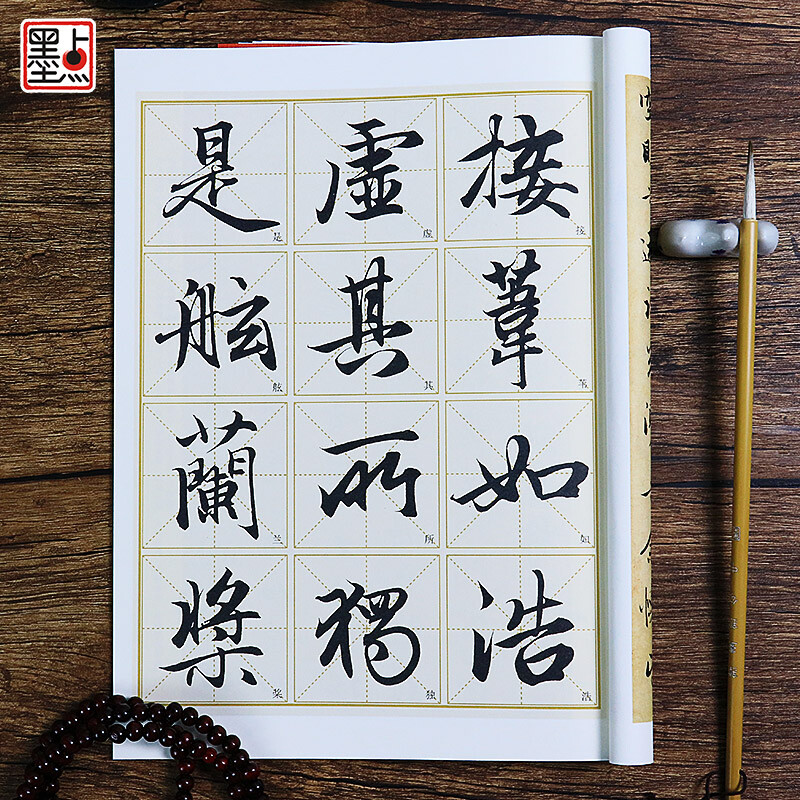 墨点
接葦如浩
接苇如浩
虛其所獨
虚其所独
是舷蘭槳
是舷兰桨